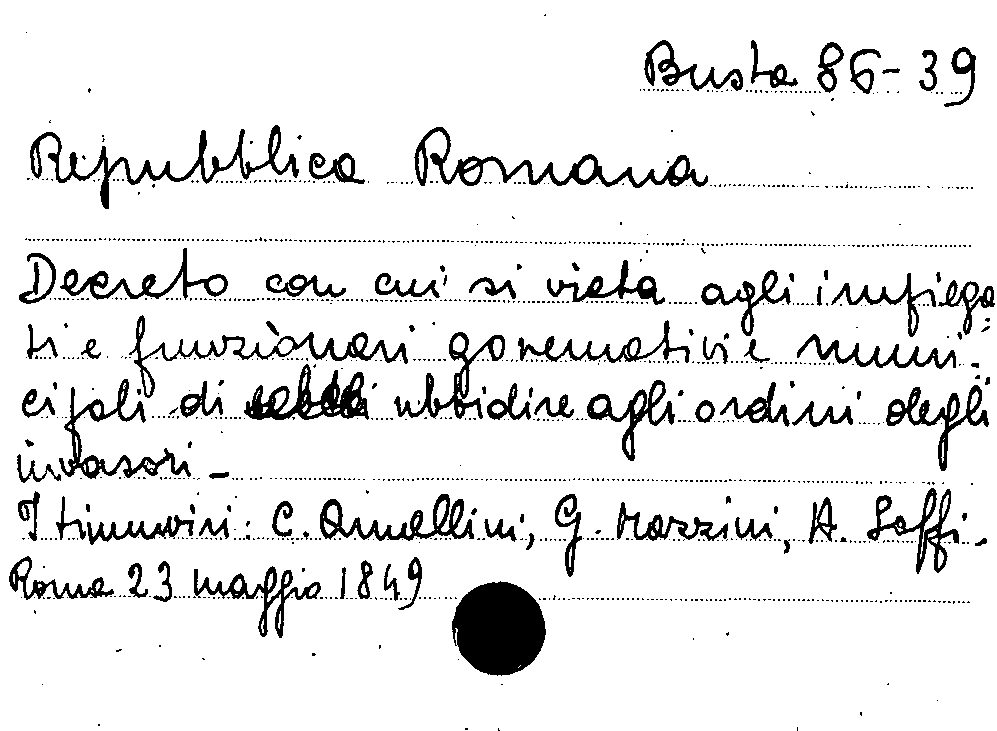 Busta 86-39
Repubblica Romana
Decreto con cui si vieta agli impiega
ti e funzionari governativi e muni-
cipali di ubbidire agli ordini degli
invasori -
I triumviri: C. Armellini, G. Mazzini, A. Saffi -
Roma 23 maggio 1849